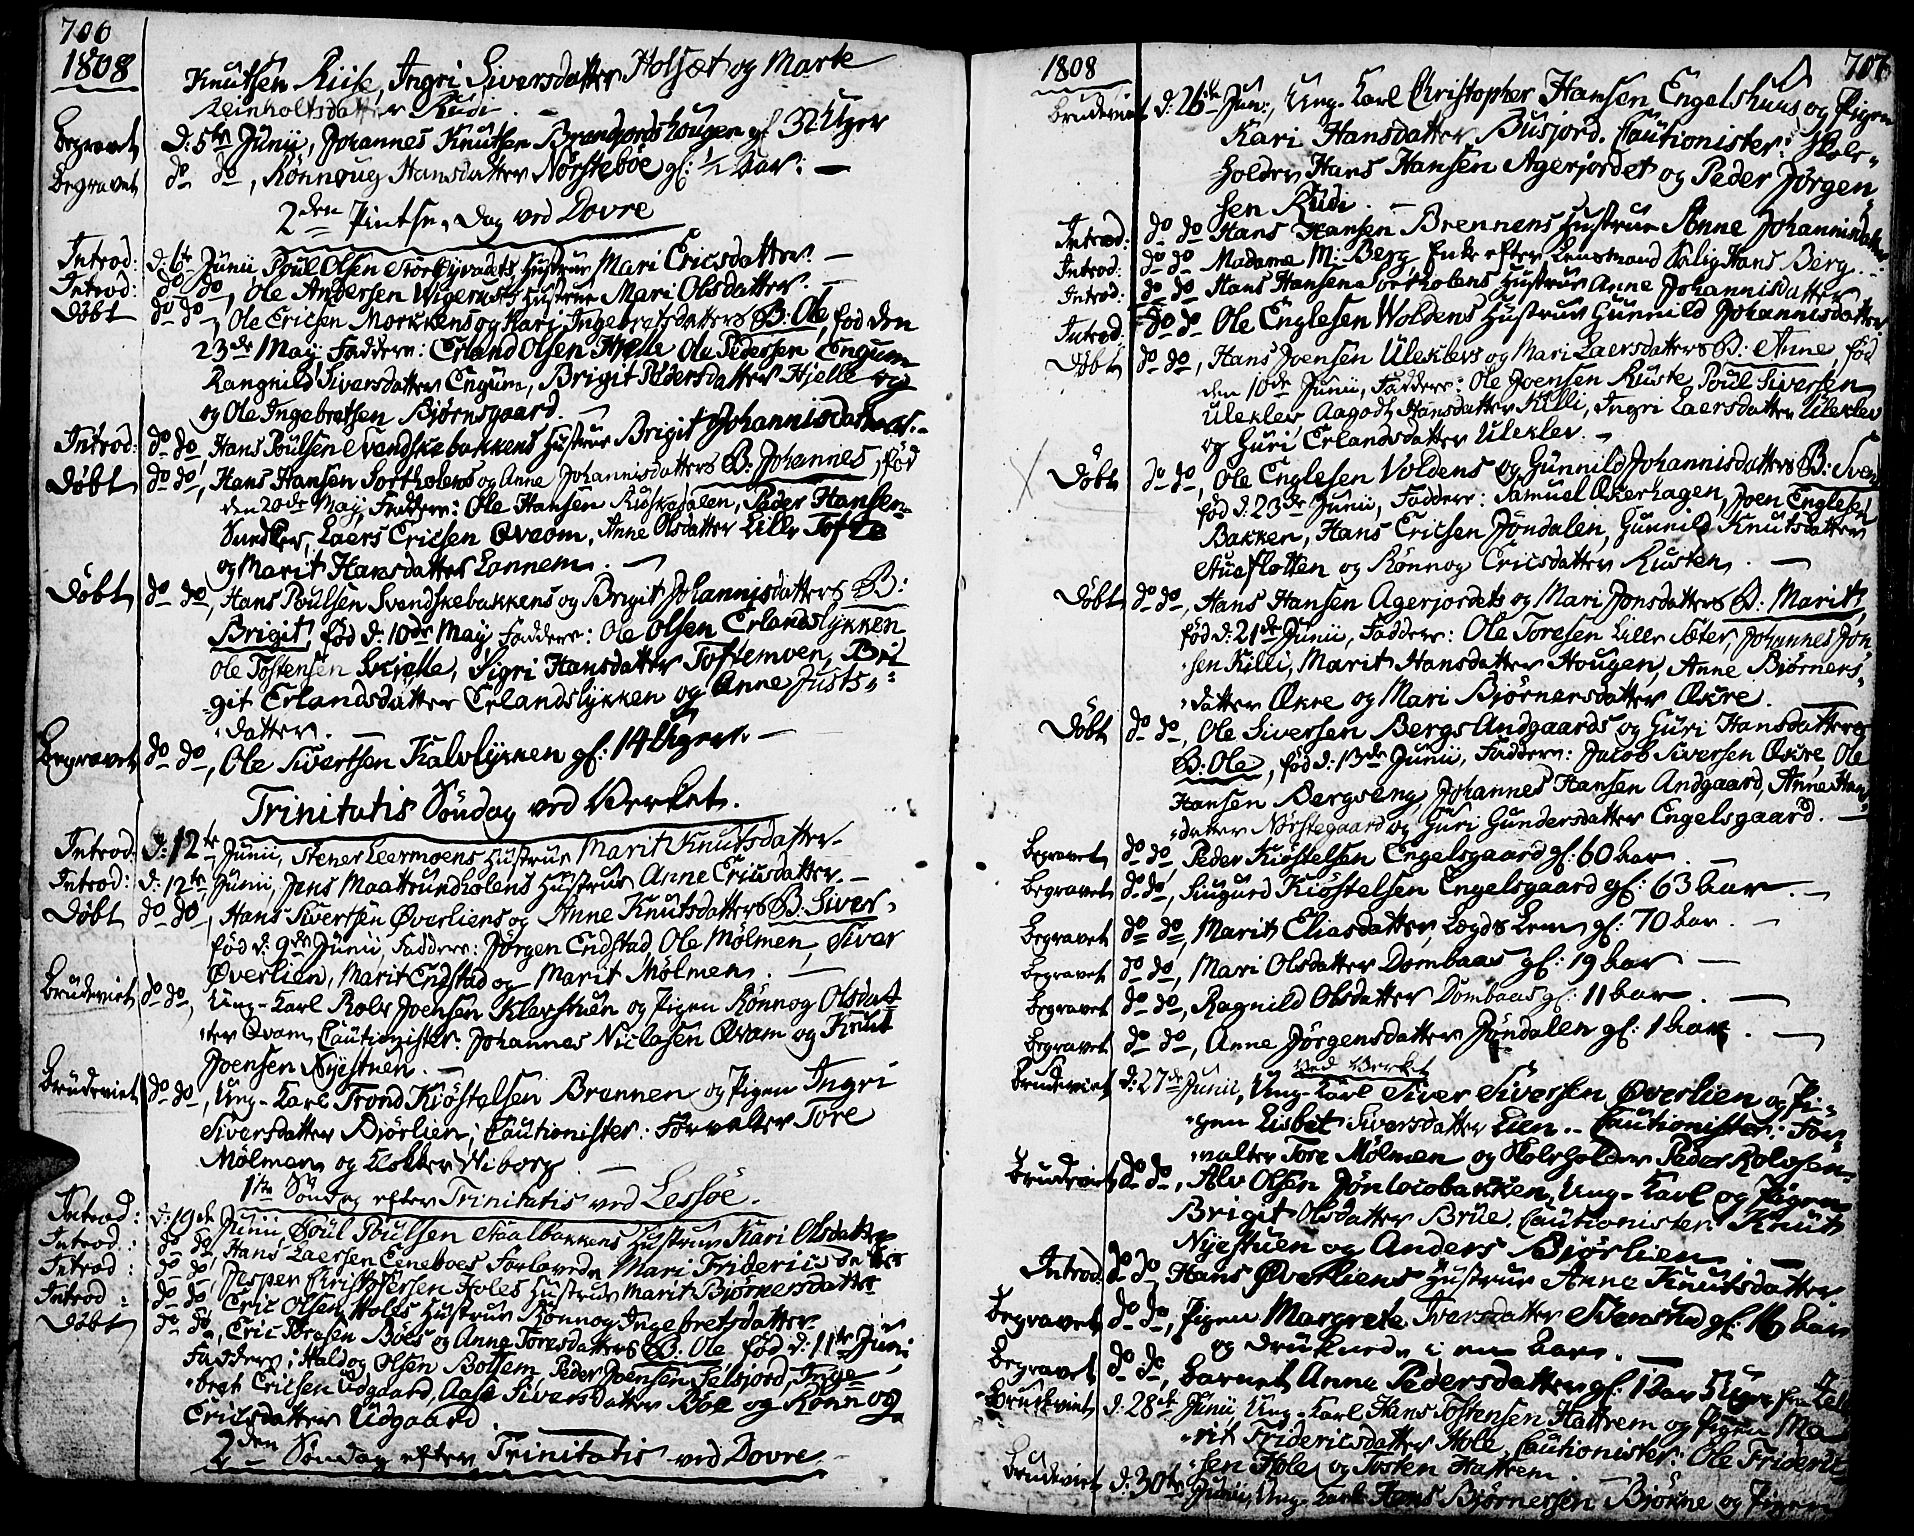 706
1808
Knutsen Riise, Ingri Siversdatter Holsæt og Marte
Reinholtsdatter Rudi
Begravet D: 5te Junii, Johannes Knutsen gl: 3 Uger
Begravet do do, Rönnoug Hansdatter Nörsteböe gl: 1/2 Aar: —
2den Pintse, Dag ved Dovre
Introd: d: 6te Junii Poul Olsen Hustrue Mari Ericsdatter. —
Introd: do do, Ole Andersen Wigerusts Hustrue Mari Olsdatter. —
Döbt do do, Ole Ericsen Morkkens og Kari Ingebretsdatters B: Ole, föd den
23de May Faddere: Erland Olsen Hjelle Ole Pedersen Engum
Rangnild Siversdatter Engum, Brigit Pedersdatter Hjelle og
og Ole Ingebretsen Bjørnsgaard. —
Introd: do do Hans Poulsen Svendskebakkens Hustrue Brigit Johannisdatter. —
Döbt do do, Hans Hansen Sortholens og Anne Johannisdatters B: Johannes, föd
den 20de May, Faddere: Ole Hansen, Peder Hansen
Laers Ericsen Qvaom, Anne Olsdatter Lille Tofte
og Marit Hansdatter Lannem. —
Döbt do do, Hans Poulsen Svendskebakkens og Brigit Johannisdatters B:
Brigit, föd d: 10de May, Faddere: Ole Olsen Erlandslykken
Ole Tostensen, Sigri Hansdatter Toftemoen, Bri
git Erlandsdatter Erlandslykken og Anne Justs
datter. —
Begravet do do, Ole Sivertsen Kalvlykken gl: 14 Uger. —
Trinitatis Söndag ved Verket.
Introd: d: 12te Junii, Stener Leermoens Hustrue Marit Knutsdatter.
Introd: d: 12te Junii, Jens Hustrue Anne Ericsdatter. —
Döbt do do, Hans Sivertsen Øverliens og Anne Knutsdatters B: Siver,
föd d: 9de Junii, Faddere: Jörgen Endstad, Ole Mølmen, Siver
Øverlien, Marit Endstad og Marit Mølmen. —
Brudeviet do do, Ung-Karl Rolv Joensen Klevstuen og Pigen Rönnog Olsdat
ter Qvam, Cautionister: Johannes Niclasen Qvam og Knut
Joensen Nyestuen. —
Brudeviet do do, Ung-Karl Trond Kiöstelsen Brennen og Pigen Ingri
Siversdatter Bjørlien; Cautionister: Forvalter Tore
Mølmen og Klokker Wiborg. —
1te Söndag efter Trinitatis ved Lessöe.
Introd: d: 19de Junii Poul Poulsen Hustrue Kari Olsdatter
Introd: do do Hans Laersen Eeneboes Forlovede Mari Fridericsdatter
Introd: do do, Jesper Christensen Holes Hustrue Marit Bjørnersdatter
Introd: do do, Eric Olsen Holes Hustrue Rönnog Ingebretsdatter.
Döbt do do, Eric Toresen Böes og Anne Toresdatters B: Ole, föd d: 11te Juni
Faddere: Haldog Olsen Bottem, Peder Joensen Selsjord, Inge
bret Ericsen Udgaard, Aase Siversdatter Böe og Rönnog
Ericsdatter Udgaard.
2den Söndag efter Trinitatis ved Dovre.
1808
707
Brudeviet d: 26de Jun:, Ung-Karl Christopher Hansen Engelshuus og Pigen
Kari Hansdatter Busjord. Cautionister: Skole-
holder Hans Hansen Agerjordet og Peder Jörgen
sen Rudi. —
Introd: do do Hans Hansen Brennens Hustrue Anne Johannisdatter
Introd: do do Madame M: Berg Enke efter Lensmand Salig Hans Berg. —
Introd: do do Hans Hansen Sortholens Hustrue Anne Johannisdatter
Introd: do do Ole Englesen Woldens Hustrue Gunnild Johannisdatter
Döbt do do, Hans Joensen Uleklevs og Mari Laersdatters B: Anne, föd
den 10de Junii, Faddere: Ole Joensen Ruste, Poul Siversen
Uleklev, Aagodt Hansdatter Killi, Ingri Laersdatter Uleklev
og Guri Erlandsdatter Uleklev. —
Döbt do do, Ole Englesen Voldens og Gunnild Johannisdatters B: Svend
föd d: 23de Junii, Faddere: Samuel Øкerhagen, Joen Englesen
Bakken, Hans Ericsen Jøndalen, Gunnild Knutsdatter
Stueflotten og Rönnog Ericsdatter Rusten. —
Döbt do do, Hans Hansen Agerjordets og Mari Jonsdatters B: Marit,
föd d: 21de Junii, Faddere: Ole Toresen Lille Sæter, Johannes Jon
sen Killi, Marit Hansdatter Hougen, Anne Bjørners-
datter Økre og Mari Bjørnersdatter Økre. —
Döbt do do, Ole Siversen Bergs Andgaards og Guri Hansdatters
B: Ole, föd d: 13de Junii, Faddere: Jacob Siversen Økre, Ole
Hansen Bergseng, Johannes Hansen Andgaard, Anne Hans
datter Nörstegaard og Guri Gundersdatter Engelsgaard. —
Begravet do do, Peder Kiöstelsen Engelsgaard gl: 60 Aar. —
Begravet do do, Siugurd Kiöstelsen Engelsgaard gl: 63 Aar. —
Begravet do do, Marit Eliasdatter, Lægds Lem gl: 70 Aar. —
Begravet do do, Mari Olsdatter Dombaas gl: 19 Aar —
Begravet do do, Ragnild Olsdatter Dombaas gl: 11 Aar. —
Begravet do do, Anne Jörgensdatter Jøndalen gl: 1 Aar. —
Ved Verket
Brudeviet d: 27de Junii, Ung-Karl Siver Siversen Øverlien og Pi-
gen Lisbet Siversdatter Lien. — Cautionister: For-
valter Tore Mølmen og Skoleholder Peder Rolvsen
Brudeviet do do, Alv Olsen, Ung-Karl og Pigen
Brigit Olsdatter Brue. Cautionister Knut
Nyestuen og Anders Bjørlien. —
Introd: do do Hans Øverliens Hustrue Anne Knutsdatter
Begravet do do, Pigen Margrete Iversdatter Stenstad gl: 16 Aar
og druknede i en. —
Begravet do do, Barnet Anne Pedersdatter gl: 1 Aar 5 Uger fra
Brudeviet d: 28de Junii, Ung-Karl Hans Tostensen Hattrem og Pigen Ma
rit Fridericsdatter Hole, Cautionister: Ole Frideric
sen Hole og Tosten Hattrem. —
Brudeviet d: 30te Junii, Ung-Karl Hans Bjørnersen Bjøkne og Pigen